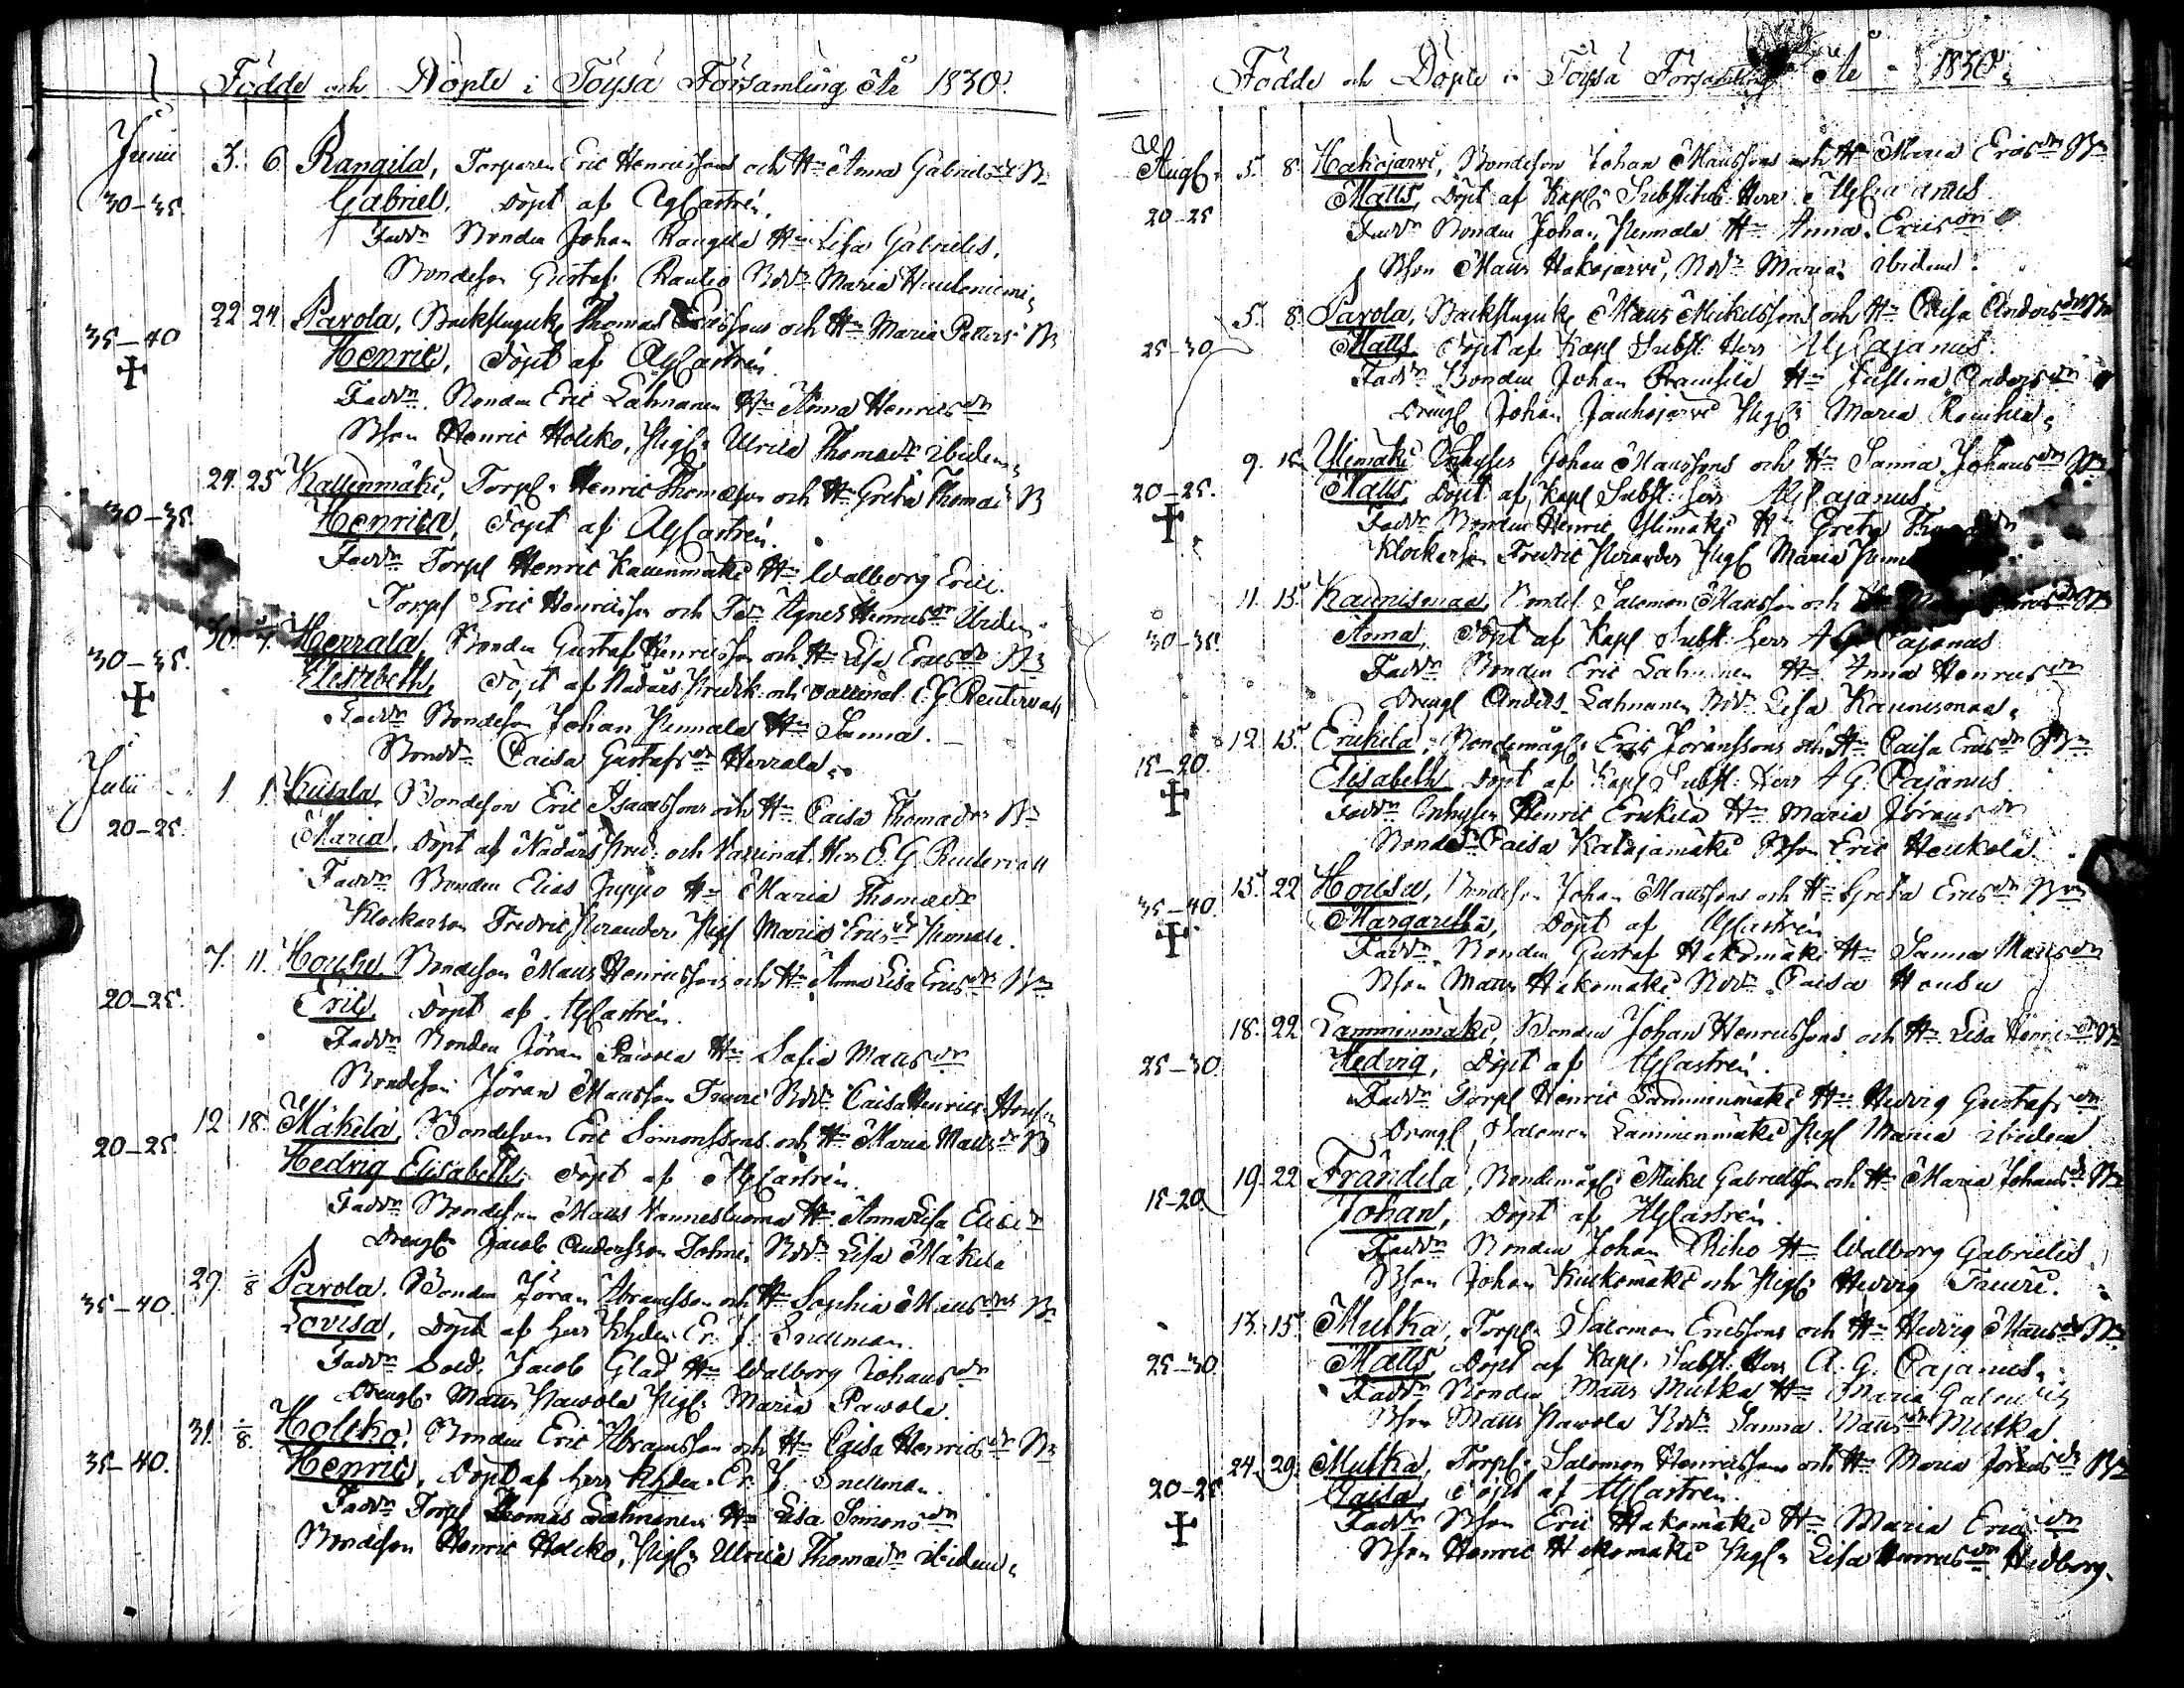 Födde och Döpte i Töysä Församling År 1830.
Junii 3. 6 Rangila, Torparen Eric Henricssons och Hu Anna Gabrielsdr B
30-35. Gabriel, döpt af AGCastrén.
Faddr Bonden Johan Rangila Hu Lisa Gabriels.
Bondeson Gustaf Rautio Bdr Maria
22 24 Pavola, Backstuguk Thomas Ericssons och Hu Maria Petters B
35-40 Henric, döpt af AGCastrén
Faddr. Bonden Eric Lahnanen Hu Anna Henricsdr
Bson Henric Holcko, Pig. Ulrica Thomasdr ibidem
24. 25 Kallinmäki, Torp. Henric Thomasson och Hu Greta Thomas B
30-35. Henrica, döpt af AGCastrén.
Faddr Torp Henric Hu Walborg Erici.
Torp Eric Henricsson och Agnes ibidem
30. Herrala, Bonden Gustaf Henricsson och Hu Lisa Ericsdr B
30-35. Elisabeth, döpt af Nådårs Predik. och Vaccinat. E.G. Reuterwall
Faddr Bondeson Johan Pennala Hu Sanna.
Bonddr Caisa Gustafsdr Herrala
Julii 1 1 Bondeson Eric Isaacssons och Hu Caisa Thomadr B
20-25. Maria, döpt af Nådårs Pred: och Vaccinat. Herr E. G. Reuterwall
Faddr Bonden Elias Juppo Hu Maria Thomadr
Klockarson Fredric Pig Maria Ericsdr Pennala.
7. 11. Bondeson Matts Henricssons och Hu Anna Lisa Ericsdr B
20-25. Eric, döpt af AGCastrén.
Faddr Bonden Jöran Pawola Hu Sofia Mattsdr
Bondeson Jöran Mattsson Bdr Caisa Henrics
12 18. Mäkelä, Bondeson Eric Simonssons och Hu Maria Mattsdr B
20-25. Hedvig Elisabeth, döpt af AGCastrén.
Faddr Bondeson Matts Hu Anna Lisa
Dreng Jacob Andersson Bdr Lisa Mäkelä
29. 1/8 Pavola, Bonden Jöran Abramsson och Hu Sophia Mattsdr B
35-40. Lovisa, döpt af Herr Khden Er. J. Snellman.
Faddr Sold. Jacob Glad Hu Walborg Johansdr
Dreng Matts Pawola Pig. Maria Pawola.
31. 1/8. Holcko, Bonden Eric Abramsson och Hu Caisa Henricsdr B
35-40. Henric, döpt af Herr Khden Er. J. Snellman.
Faddr Torp Thomas Lahnanen Hu Lisa Simonsdr
Bondeson Henric Holcko, Pig. Ulrica Thomasdr ibidem
Födde och Döpte i Töysä Församling År 1830.
Aug. 5. 8. Hakojärvi, Bondeson Johan Mattssons och Hu Maria Ericsdr B
20-25 Matts, döpt af Kapl. Substitut Herr AGCajanus
Faddr Bonden Johan Pennala Hu Anna Ericsdr
Bson Matts Hakojärvi, Bdr Maria ibidem.
5. 8. Pavola, Backstuguk Matts Mickelssons och Hu Caisa Andersdr B
25-30 Matts, döpt af Kapl Subst. Herr AGCajanus.
Faddr Bonden Johan Hu Justina Andersdr
Dreng Johan Pig. Maria
9. 15 Ylimäki, Inhyses Johan Mattssons och Hu Sanna Johansdr B
20-25. Matts, döpt af Kapl Subst. Herr AGCajanus
Faddr Bonden Henric Ylimäki Hu Greta
Klockarson Fredric Pig Maria
11. 15. Kaunismaa, Bondes. Salomon Mattsson och
30-35. Anna, döpt af Kapl Subst. Herr A G Cajanus
Faddr Bonden Eric Lahnanen Hu Anna Henricsdr
Dreng Anders Lahnanen Bdr Lisa Kaunismaa.
12. 15. Erickilä, Bondemåg. Eric Jöranssons och Hu Caisa Ericsdr B
15-20. Elisabeth, döpt af Kapl Subst. Herr A G. Cajanus.
Faddr Inhyses Henric Erickilä Hu Maria Jöransdr
Bonddr Caisa Katajamäki Bson Eric Heikola
15. 22 Housu, Bondeson Johan Mattssons och Hu Greta Ericsdr B
35-40. Margaretha, döpt af AGCastrén
Faddr. Bonden Gustaf Hakomäki Hu Sanna Mattsdr
Bson Matts Hakomäki Bdr Caisa Housu
18. 22 Lamminmäki, Bonden Johan Henricssons och Hu Lisa Henricsdr B
25-30. Hedvig, döpt af AGCastrén.
Faddr Torp Henric Lamminmäki Hu Hedvig Gustafsdr
Dreng Salomon Lamminmäki Pig Maria ibidem
19. 22 Frändilä, Bondemåg. Mickel Gabrielsson och Hu Maria Johansdr B
15-20. Johan, döpt af AGCastrén.
Faddr Bonden Johan Riho Hu Walborg Gabriels
Bson Johan och Pig. Hedvig
13. 15. Mutka, Torp. Salomon Ericssons och Hu Hedvig Mattsdr B
25-30. Matts, döpt af Kapl. Subst. Herr A. G. Cajanus.
Faddr Bonden Matts Mutka Hu Maria Gabriels
Bson Matts Pawola Bdr Sanna Mattsdr Mutka.
24. 29. Mutka, Torp. Salomon Henricssons och Hu Maria Jöransdr B
20-25 Caisa, döpt af AGCastrén
Faddr Bson Eric Hakomäki Hu Maria Ericsdr
Bson Henric Hakomäki Pig. Lisa Henricsdr Hedborg.